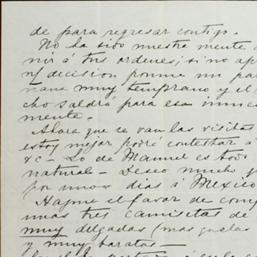 de para regresar contigo.
No ha sido nuestra mente
nir á tus ordenes; si no ap
decision porque un pa
nana muy temprano y el
cho saldrá para esa
mente.
Ahora que se van las visitas
estoy mejor podré contestar a
&c - Lo de Manuel es todo
natural - Deseo mucho
por unos dias á Mexico
Hazme el favor de com
unas tres camisetas de
muy delgadas (mas
y muy baratas -